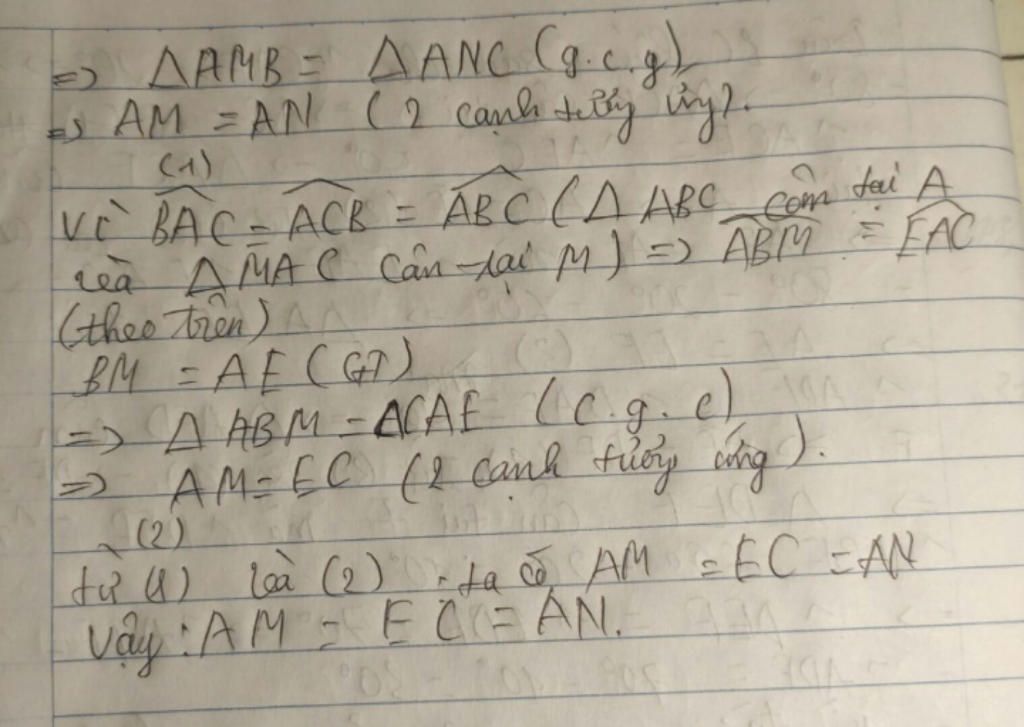 => ΔAMB = ΔANC (g.c.g)
=> AM = AN (2 cạnh tương ứng).
(1)
Vì BAC = ACB = ABC (Δ ABC cân tại A
và ΔMAC cân tại M) => ABM = EAC
(theo trên)
BM = AE (GT)
=> Δ ABM = ΔCAE (c.g.c)
=> AM = EC (2 cạnh tương ứng).
(2)
từ (1) và (2) ta có AM = EC = AN
Vậy: AM = EC = AN.